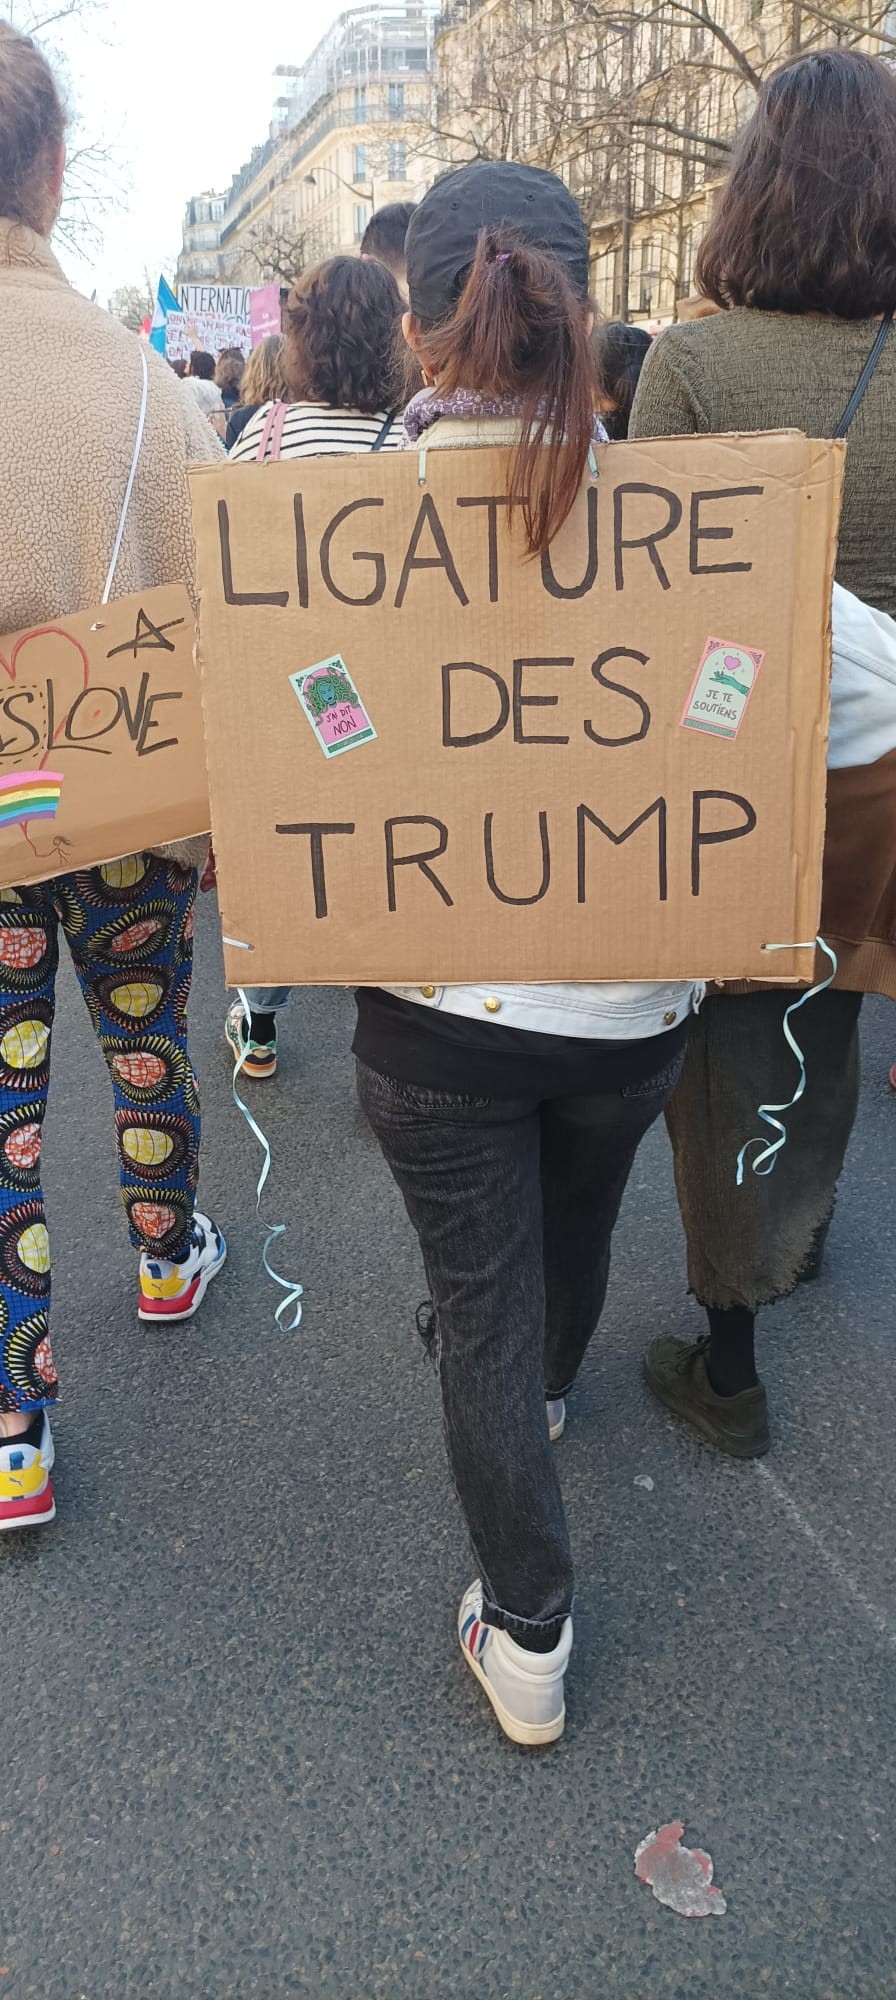 NTERNATIO
LIGATURE
DES
TRUMP
J'AI DIT
NON
JE TE
SOUTIENS
LOVE